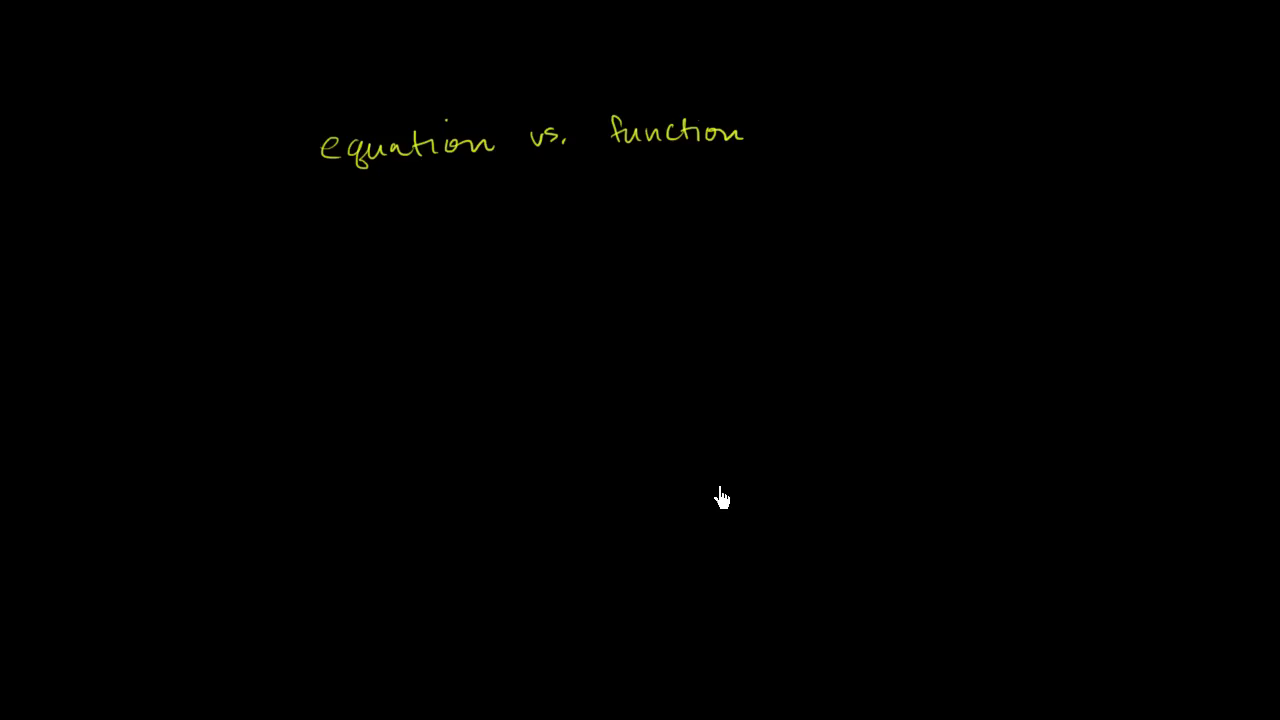 equation vs. function